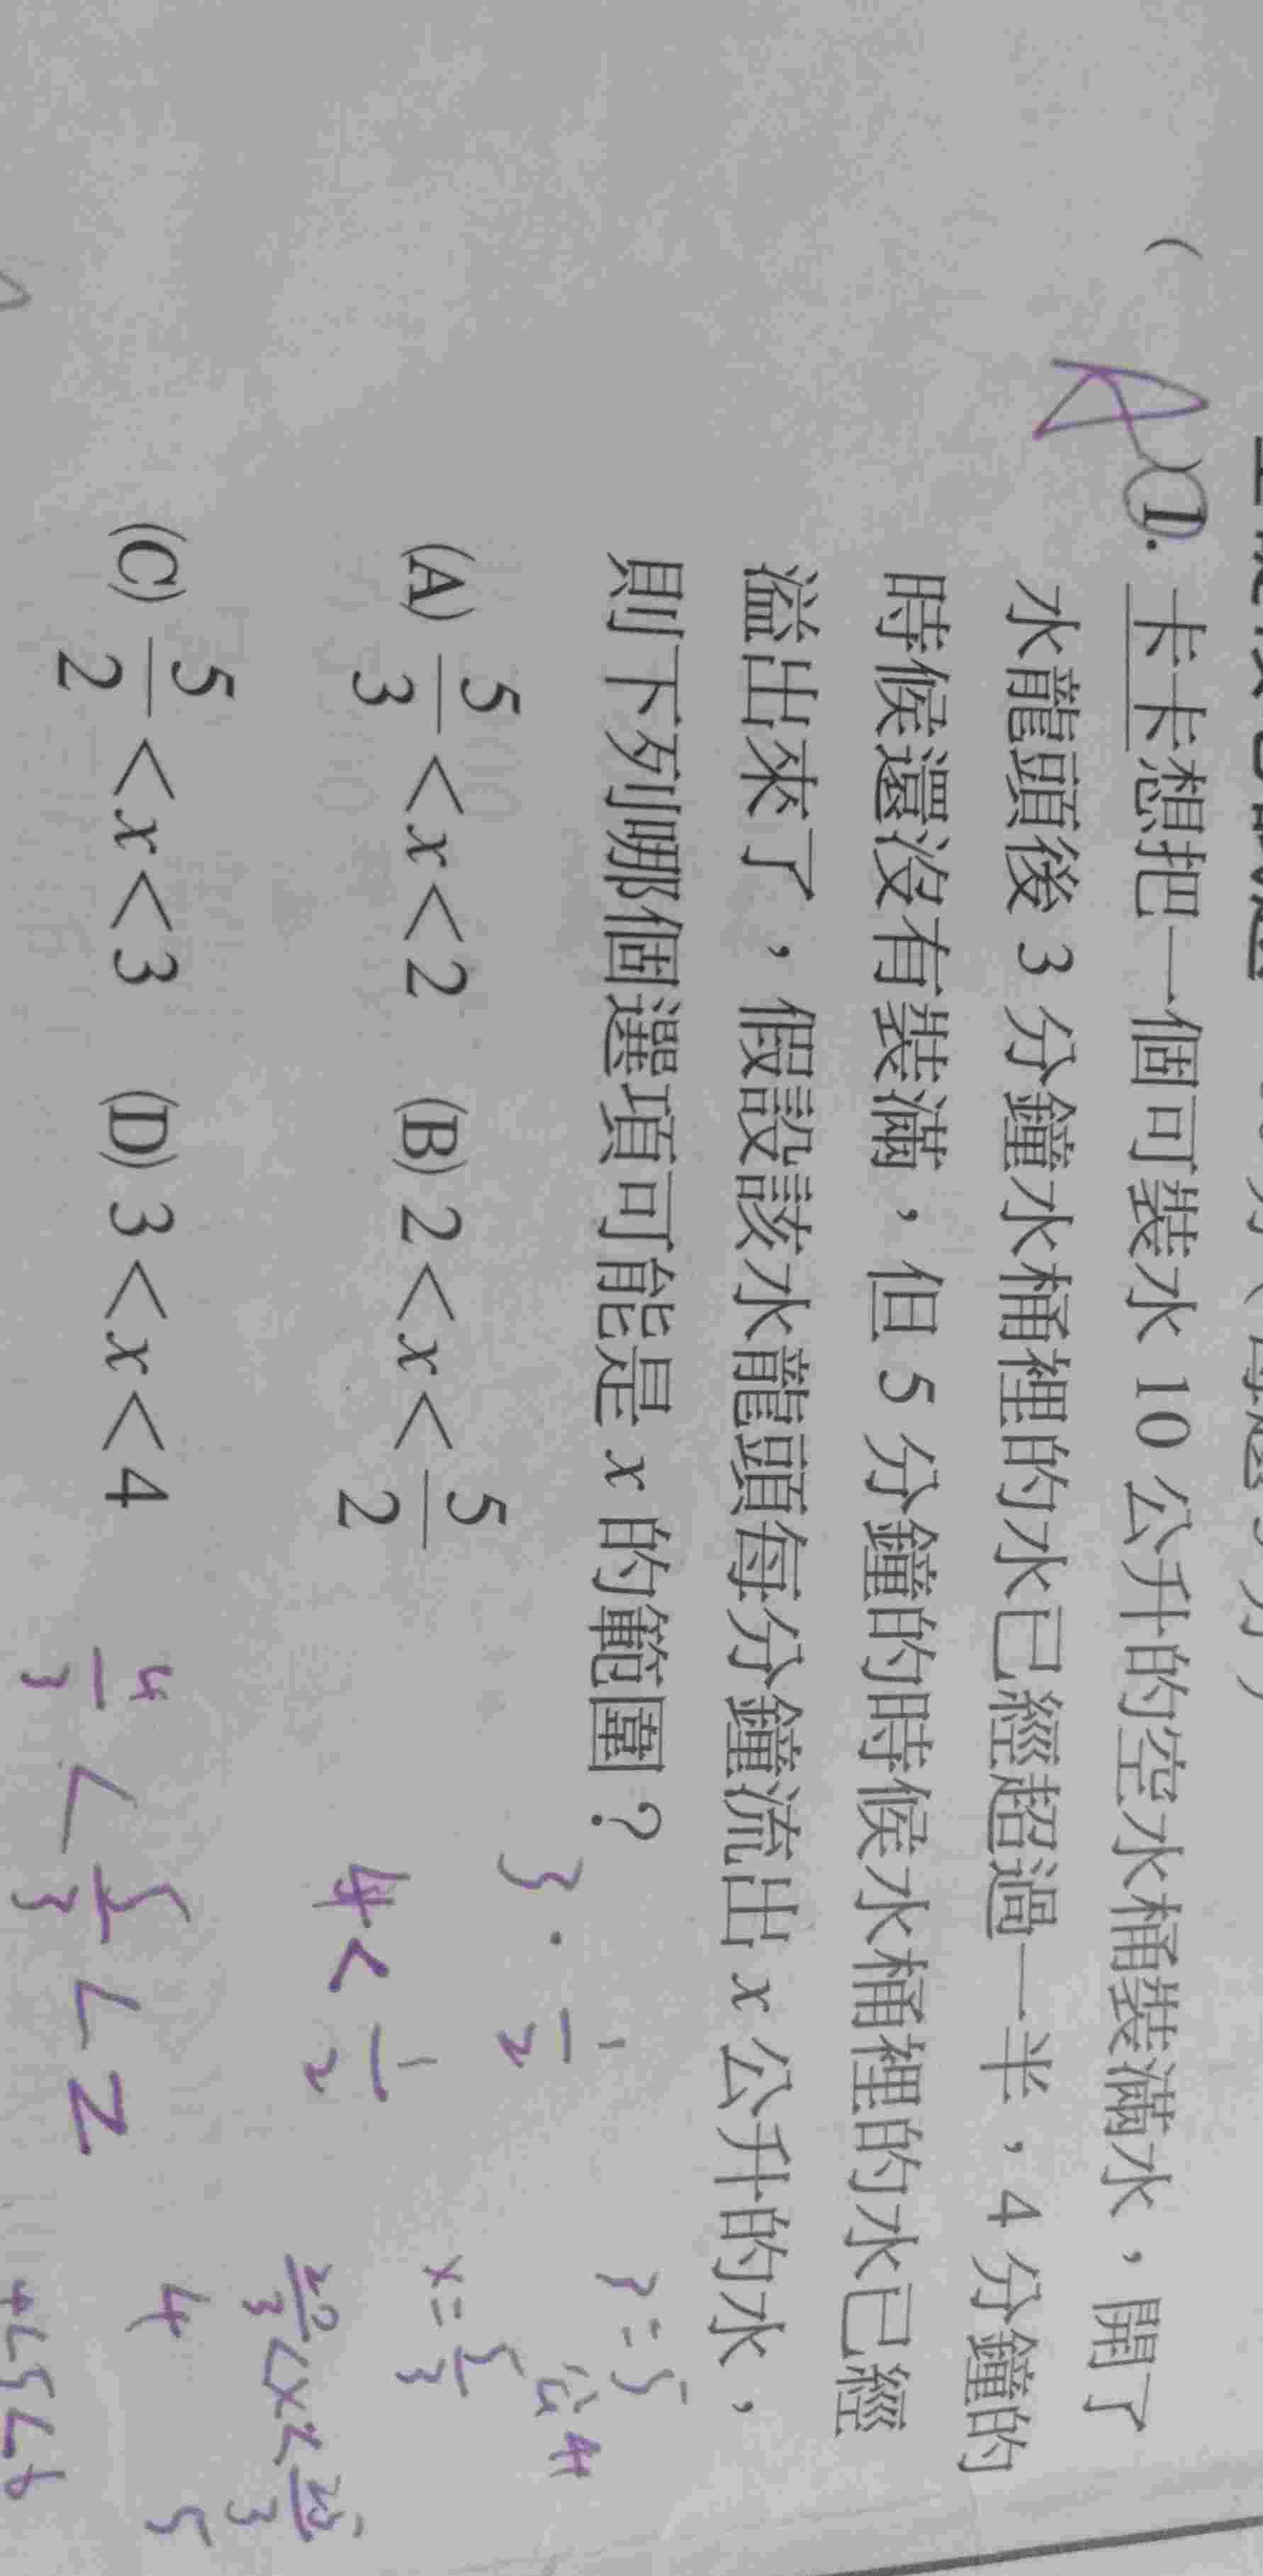 1. 卡卡想把一個可裝水 10 公升的空水桶裝滿水，開了
水龍頭後 3 分鐘水桶裡的水已經超過一半，4 分鐘的
時候還沒有裝滿，但 5 分鐘的時候水桶裡的水已經
溢出來了，假設該水龍頭每分鐘流出 x 公升的水，
則下列哪個選項可能是 x 的範圍？
(A) 5/3 < x < 2 (B) 2 < x < 5/2
(C) 5/2 < x < 3 (D) 3 < x < 4
3 · 1/2
4 < 1/2
4/3 < 5/3 < 2
x = 5/3
4
5